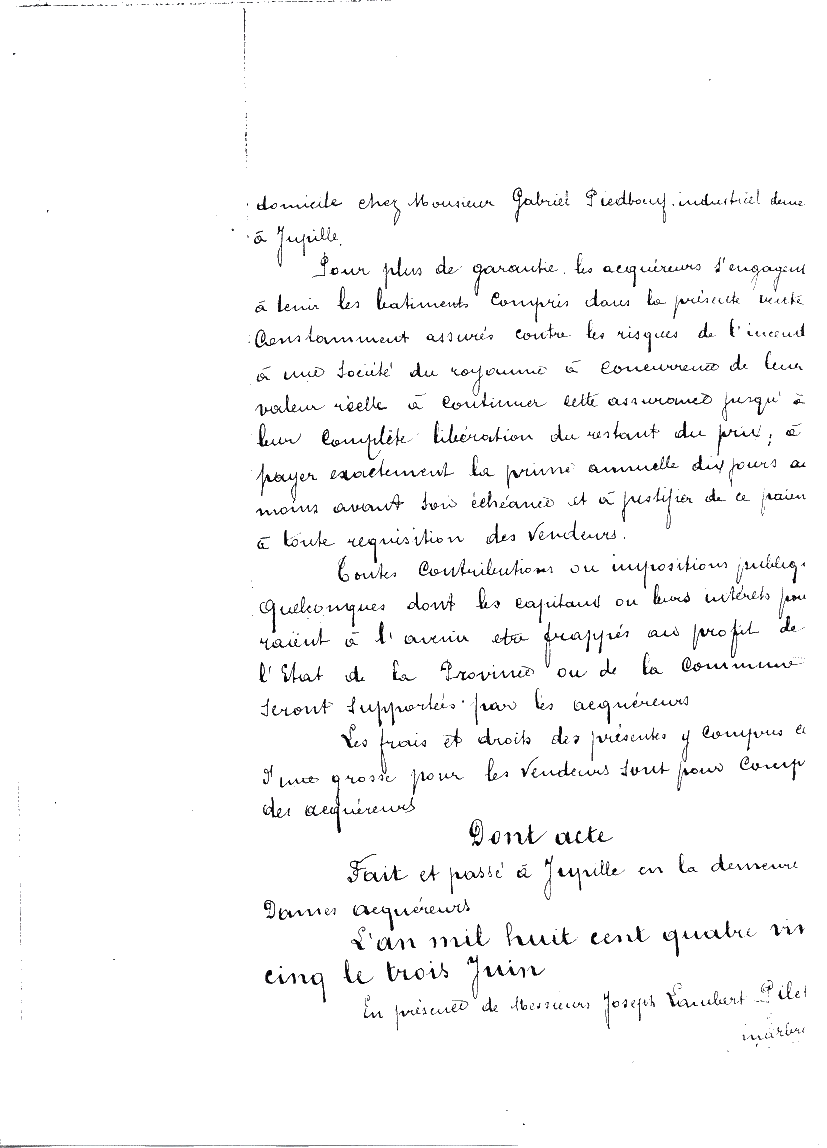 domicile chez Monsieur Gabriel Piedbœuf. industriel deme
à Jupille.
Pour plus de garantie. les acquéreurs s'engagent
à tenir les batiments compris dans la présente vente
Constamment assurés contre les risques de l'incend
à une Société du royaume à concurrence de leur
valeur réelle à continuer cette assurance jusqu'à
leur complète libération du restant du prix, à
payer exactement la prime annuelle dix jours au
moins avant son échéance et à justifier de ce paiem
à toute requisition des Vendeurs.
Toutes Contributions ou impositions publiq
Quelconques dont les capitaux ou leurs intérêts pour
raient à l'avenir etre frappés au profit de
l'Etat de la Province ou de la Commune
seront supportées par les acquéreurs
Les frais et droits des présentes y compris c
d'une grosse pour les Vendeurs sont pour Comp
des acquéreurs
Dont acte
Fait et passé à Jupille en la demeure
Dames acquéreurs
L'an mil huit cent quatre vin
cinq le trois Juin
En présence de Messieurs Joseph Lambert Pilet
marbr